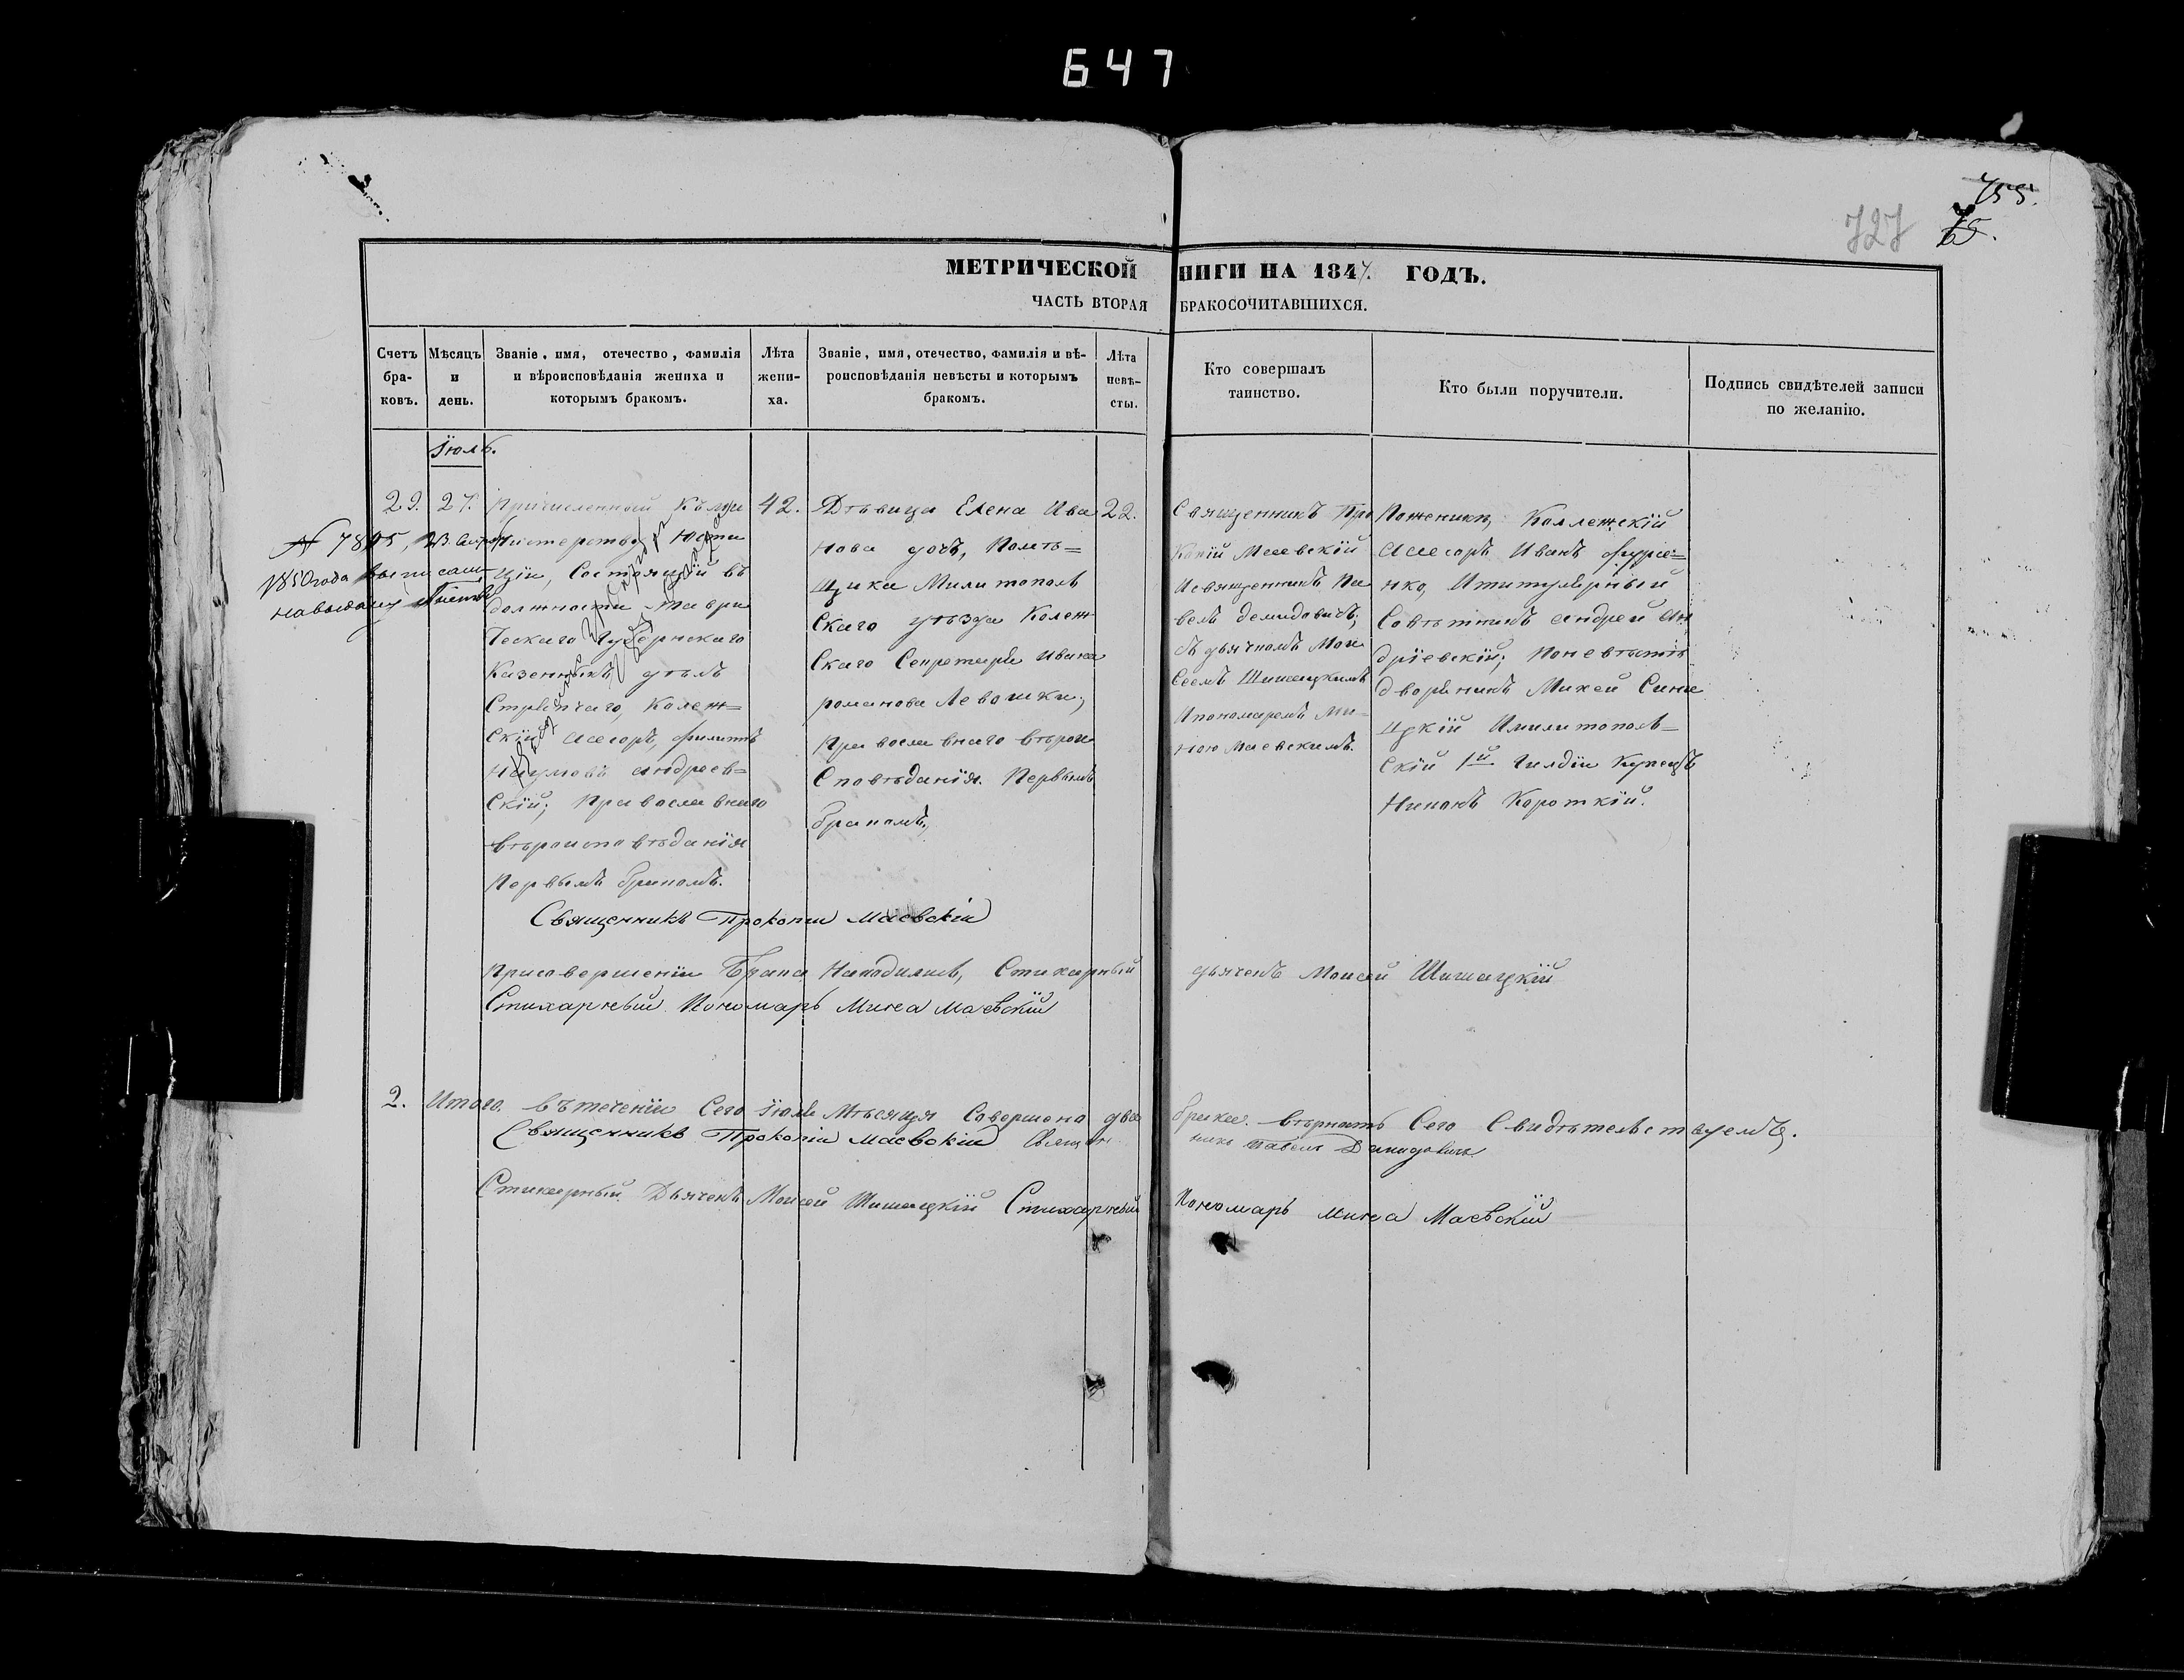 647
755.
727
65.
МЕТРИЧЕСКОЙ НИГИ НА 1847. ГОДЪ.
ЧАСТЬ ВТОРАЯ БРАКОСОЧИТАВШИХСЯ.
Счетъ бра-
ковъ.
Мѣсяцъ
и
день.
Званіе, имя, отечество, фамилія
и вѣроисповѣданія жениха и
которымъ бракомъ.
Лѣта
жени-
ха.
Званіе, имя, отечество, фамилія и вѣ-
роисповѣданія невѣсты и которымъ
бракомъ.
Лѣта
невѣ-
сты.
Кто совершалъ
таинство.
Кто были поручители.
Подпись свидѣтелей записи
по желанію.
Іюль.
29.
27.
Причисленный Къ Ми
нистерству Юсти
ціи, Состоящій въ
должности Таври
ческаго Губернскаго
Казенныхъ дѣлъ
Стряпчаго, Колеж=
Скій Асесоръ, Филипъ
Наумовъ Андреев=
Скій; Православнаго
вѣроисповѣданія
Первымъ бракомъ.
№ 7805, 23.
1850 года выписан
42.
Дѣвица Елена Ива
нова дочь, Помѣ=
щика Милитополь
Скаго уѣзда Колеж
Скаго Секретаря Ивана
романова Левошки;
Православнаго вѣрои
Сповѣданія. Первымъ
бракомъ;
22.
Священникъ Про
Копій Маевскій
Исвященникъ Па
велъ Демидовичъ;
Съ дьячкомъ Мои
Сеемъ Шишацкимъ
Ипономаремъ Ми-
ною Маевскимъ.
Поженихѣ, Коллежскій
Асесоръ Иванъ
нко, Ититулярный
Совѣтникъ Андрей Ан
дріевскій; Поневѣстѣ
дворянинъ Михей Сини
цкій Имилитополь=
Скій 1й Гилдіи Купецъ
Никонъ Короткій.
Священникъ Прокопій Маевскій
Присовершеніи Брака Находились, Стихарный дьячекъ Моисей Шишацкій
Стихарный Пономарь Мина Маевскій
2. Итого. вътеченіи Сего Іюля Мѣсяца Совершено два брака. вѣрность Сего Свидѣтельствуемъ.
Священникъ Прокопій Маевскій Священникъ Павелъ Демидовичъ
Стихарный Дьячекъ Моисей Шишацкій Стихарный Пономарь Мина Маевскій